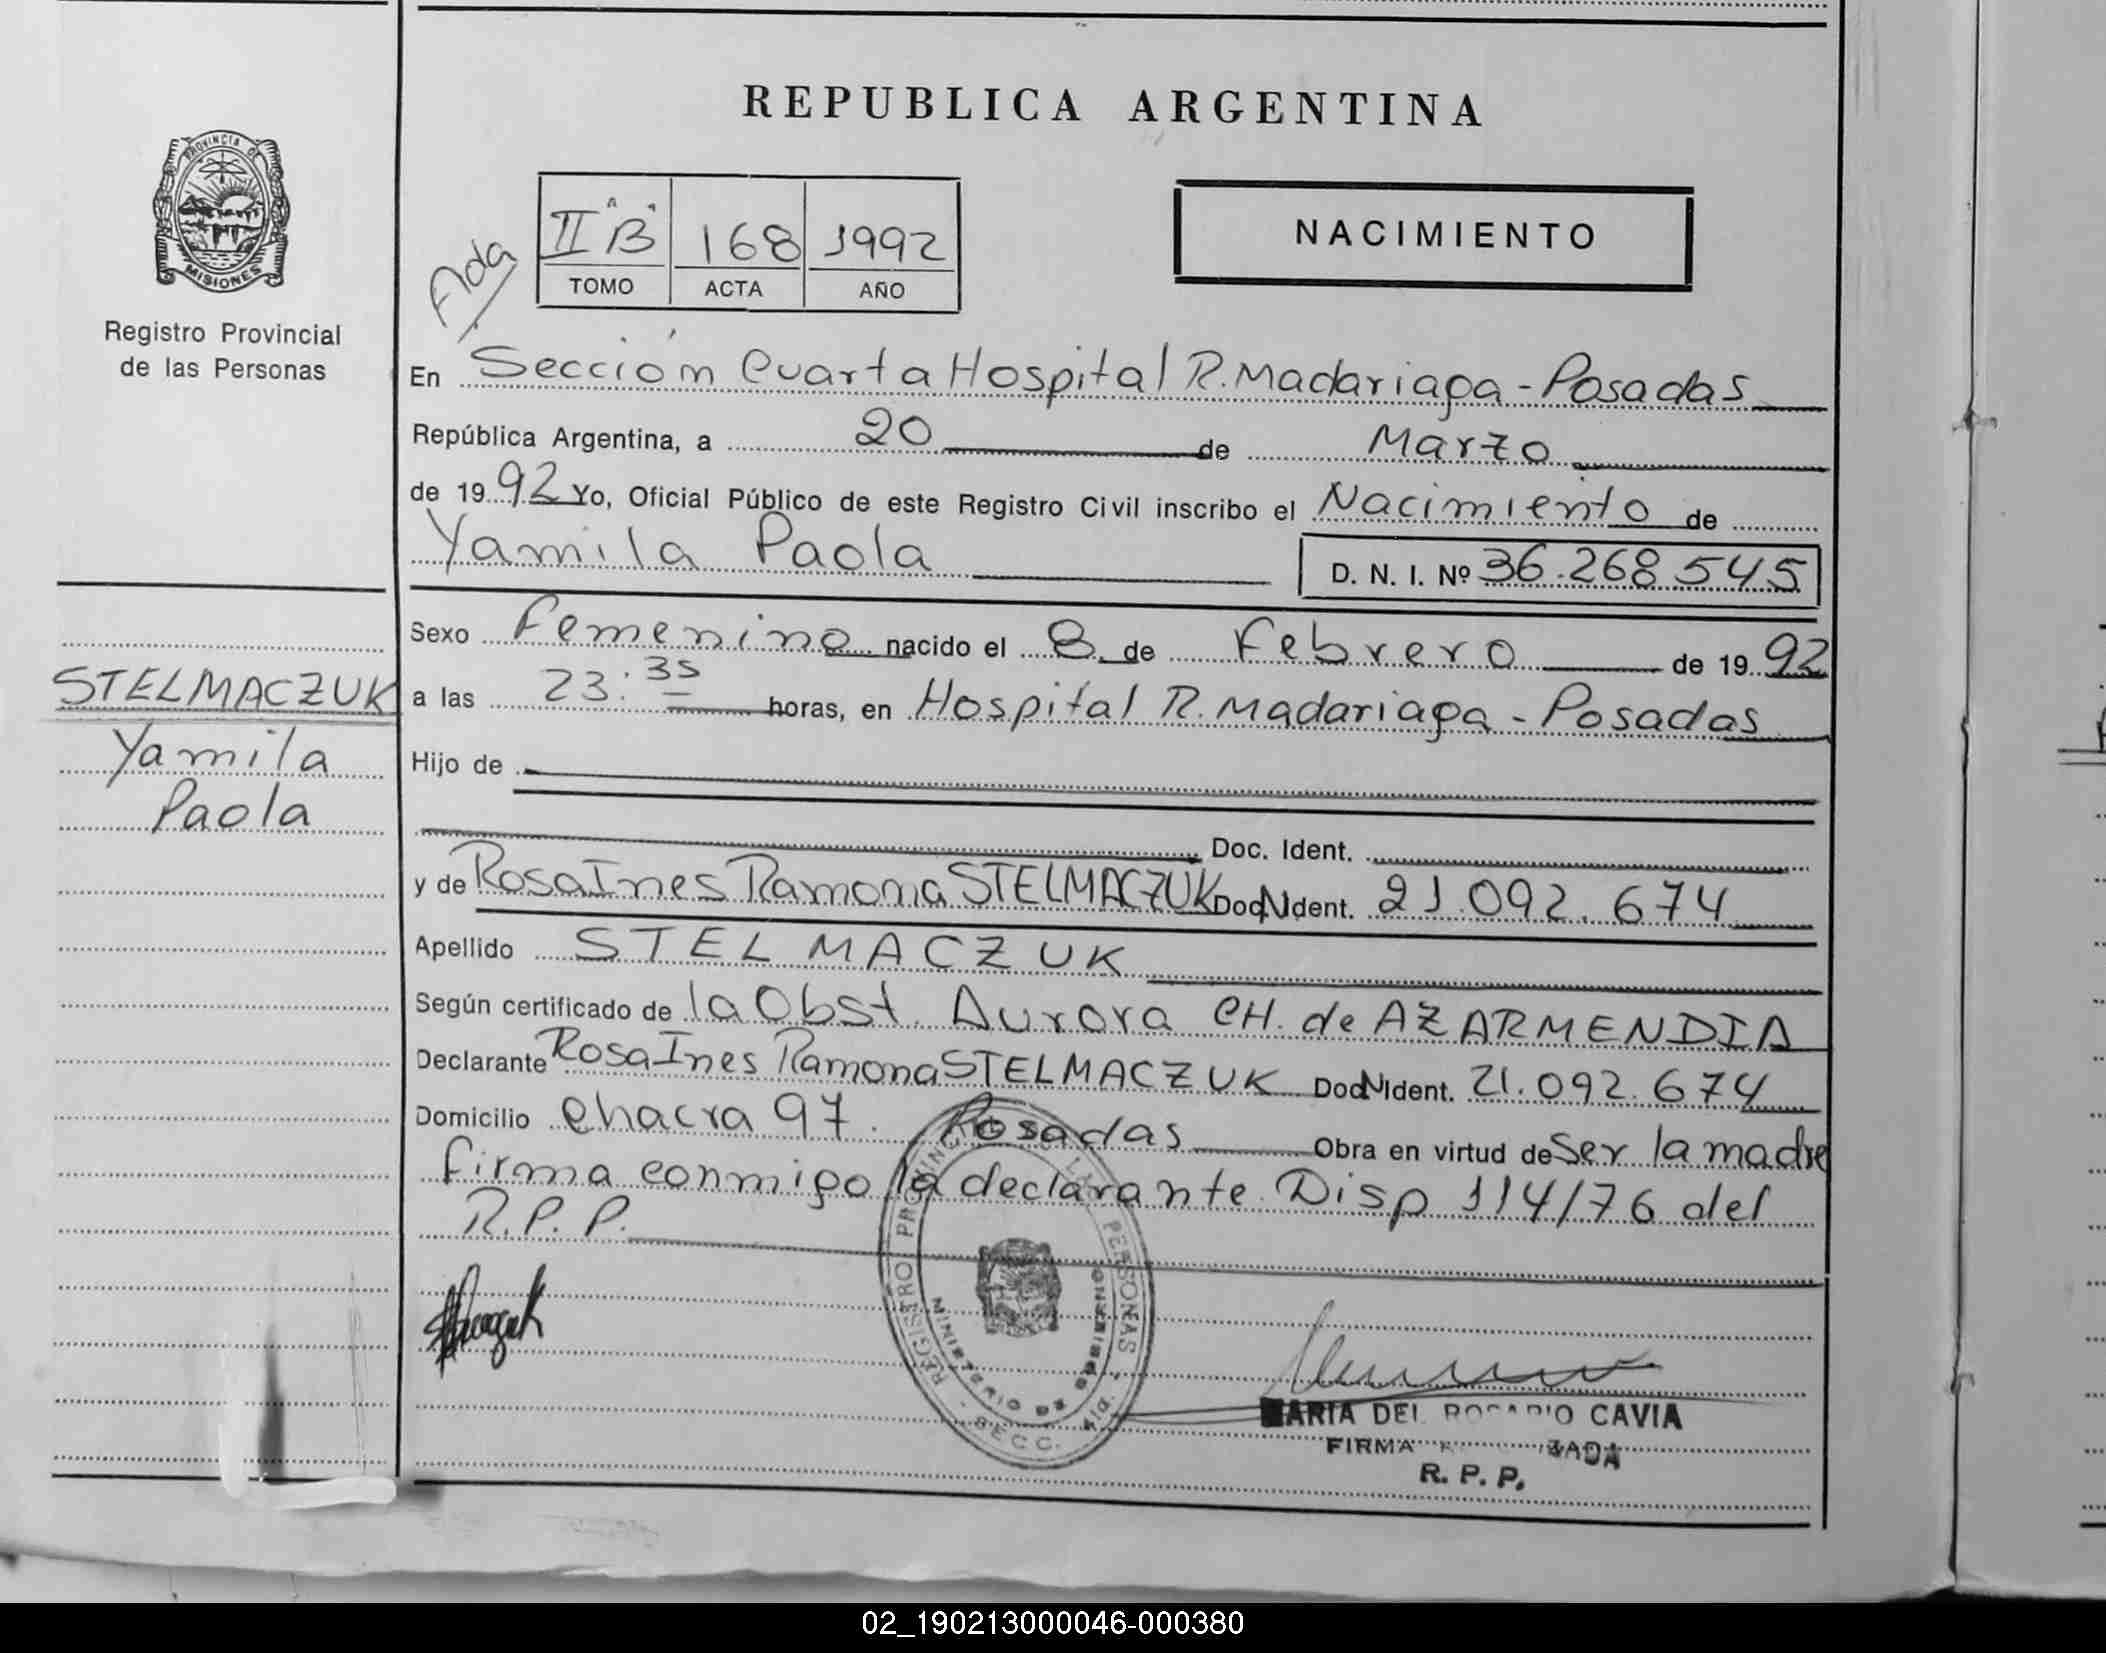 REPUBLICA ARGENTINA
PROVINCIA DE
MISIONES
Registro Provincial
de las Personas
II "B" 168 1992
TOMO ACTA AÑO
NACIMIENTO
En Sección Cuarta Hospital R. Madariaga - Posadas
República Argentina, a 20 de Marzo
de 1992 Yo, Oficial Público de este Registro Civil inscribo el Nacimiento de
Yamila Paola D. N. I. Nº 36.268.545
Sexo Femenino nacido el 8 de Febrero de 1992
STELMACZUK
Yamila
Paola
a las 23:35 horas, en Hospital R. Madariaga - Posadas
Hijo de
Doc. Ident.
y de Rosa Ines Ramona STELMACZUK Doc. Ident. 21.092.674
Apellido STELMACZUK
Según certificado de la Obst. Aurora CH. de AZARMENDIA
Declarante Rosa Ines Ramona STELMACZUK Doc. Ident. 21.092.674
Domicilio Chacra 97. Posadas Obra en virtud de Ser la madre
firma conmigo la declarante. Disp 114/76 del
R.P.P.
REGISTRO PROVINCIAL DE LAS PERSONAS
MINISTERIO DE GOBIERNO
SECC. 4ta.
MARIA DEL ROSARIO CAVIA
FIRMA
R. P. P.
02_190213000046-000380